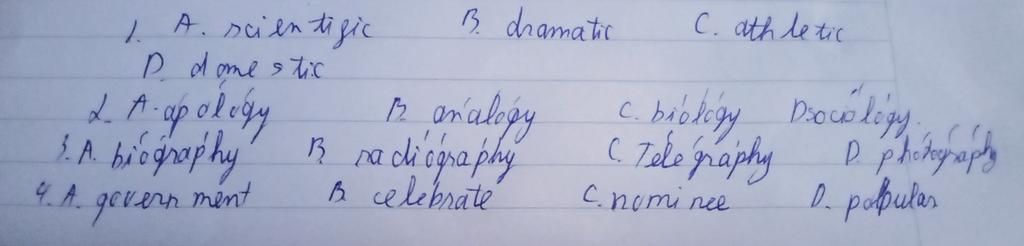 1. A. scientific B. dramatic C. athletic
D. domestic
2. A. apology B. analogy C. biology D sociology.
3. A. biography B. radiography C. Telegraphy D. photography
4. A. government B. celebrate C. nominee D. popular